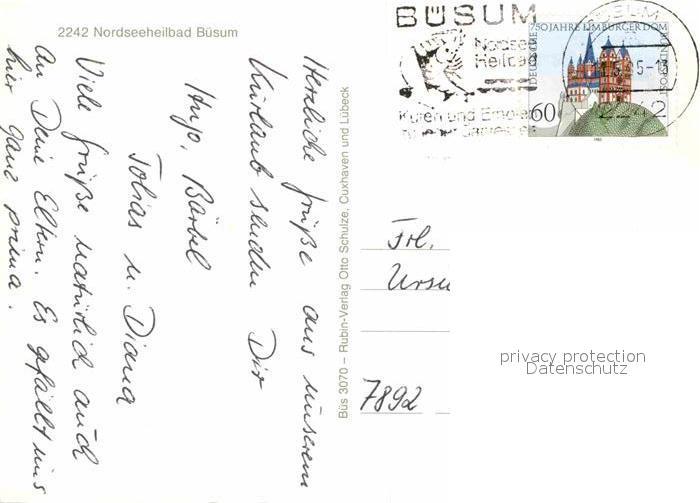 2242 Nordseeheilbad Büsum
Herzliche Grüße aus unserem
Kurlaub senden Dir
Anjo, Bärbel
Tobias u. Diana
Viele Grüße natürlich auch
an Deine Eltern. Es gefällt uns
hier ganz prima.
Büs 3070 – Rubin-Verlag Otto Schulze, Cuxhaven und Lübeck
BÜSUM
Nordsee
Heilbad
Kuren und
750 JAHRE LIMBURGER DOM
DEUTSCHE BUNDESPOST
60
2242
Frl.
Ursu
7892
privacy protection
Datenschutz